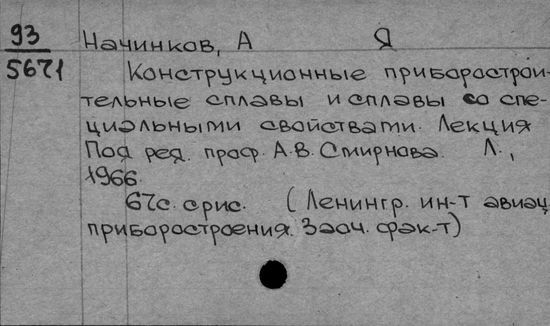 93
5671
Начинков, А Я
Конструкционные приборострои-
тельные сплавы и сплавы со спе-
циальными свойствами. Лекция
Под ред. проф. А.В. Смирнова. Л.,
1966.
67с. с рис. (Ленингр. ин-т авиац.
приборостроения. Заоч. фак-т)